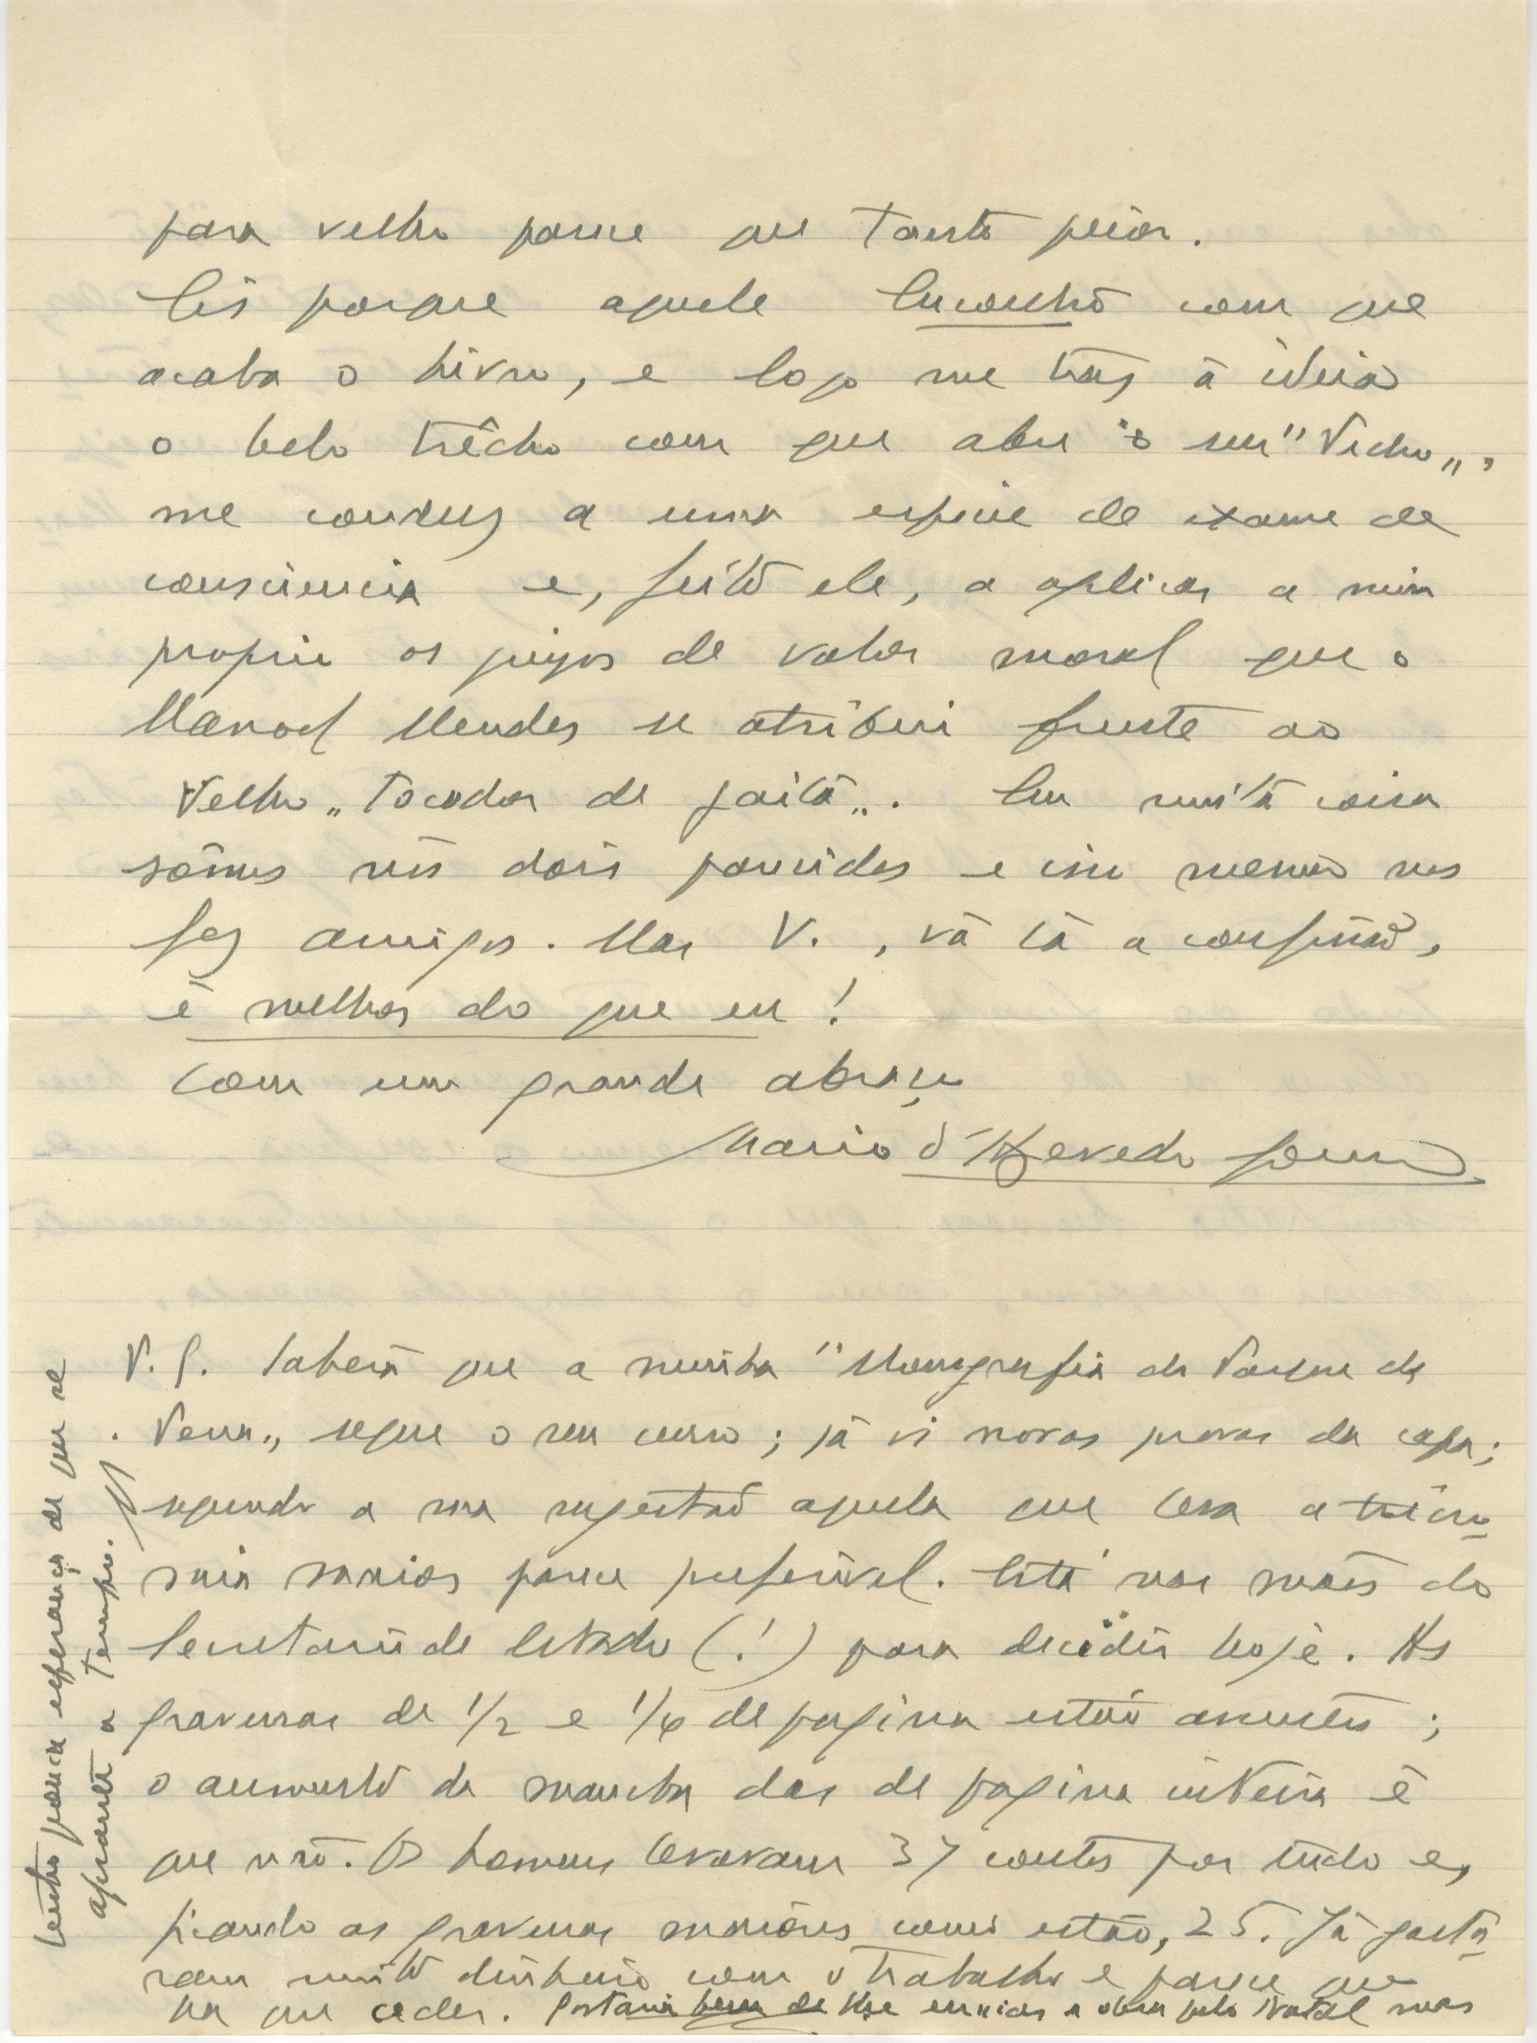 para velho parece que tanto peior.
Eis porque aquele Encontro com que
acaba o livro, e logo me tras á ideia
o belo trêcho com que abre o seu "Pedro",
me conduz a uma especie de exame de
consciencia e, feito ele, a aplicar a mim
proprio os juizos de valor moral que o
Manoel Mendes se atribui frente ao
Velho "Tocador de gaita". Em muita coisa
sômos nós dois parecidos e isso mesmo nos
fez amigos. Mas V., vá lá a confissão,
é melhor do que eu!
Com um grande abraço
Mario d'Azevedo Gomes
P.S. Saberá que a minha "Monografia do Parque da
Pena", segue o seu curso; já vi novas provas da capa;
segundo a sua sugestão aquela que leva a tricro-
mia maior parece preferivel. Está nas mãos do
Secretario de Estado (!) para decidir hoje. As
gravuras de 1/2 e 1/4 de pagina estão assentes;
o aumento da mancha das de pagina inteira é
que não. Os homens levavam 37 contos por tudo e,
ficando as gravuras maiores como estão, 25. Já gasta-
ram muito dinheiro com o trabalho e parece que
ha que ceder. Gostaria bem de lhe enviar a obra pelo Natal mas
tenho pouca esperança de que se
apronte a tempo.